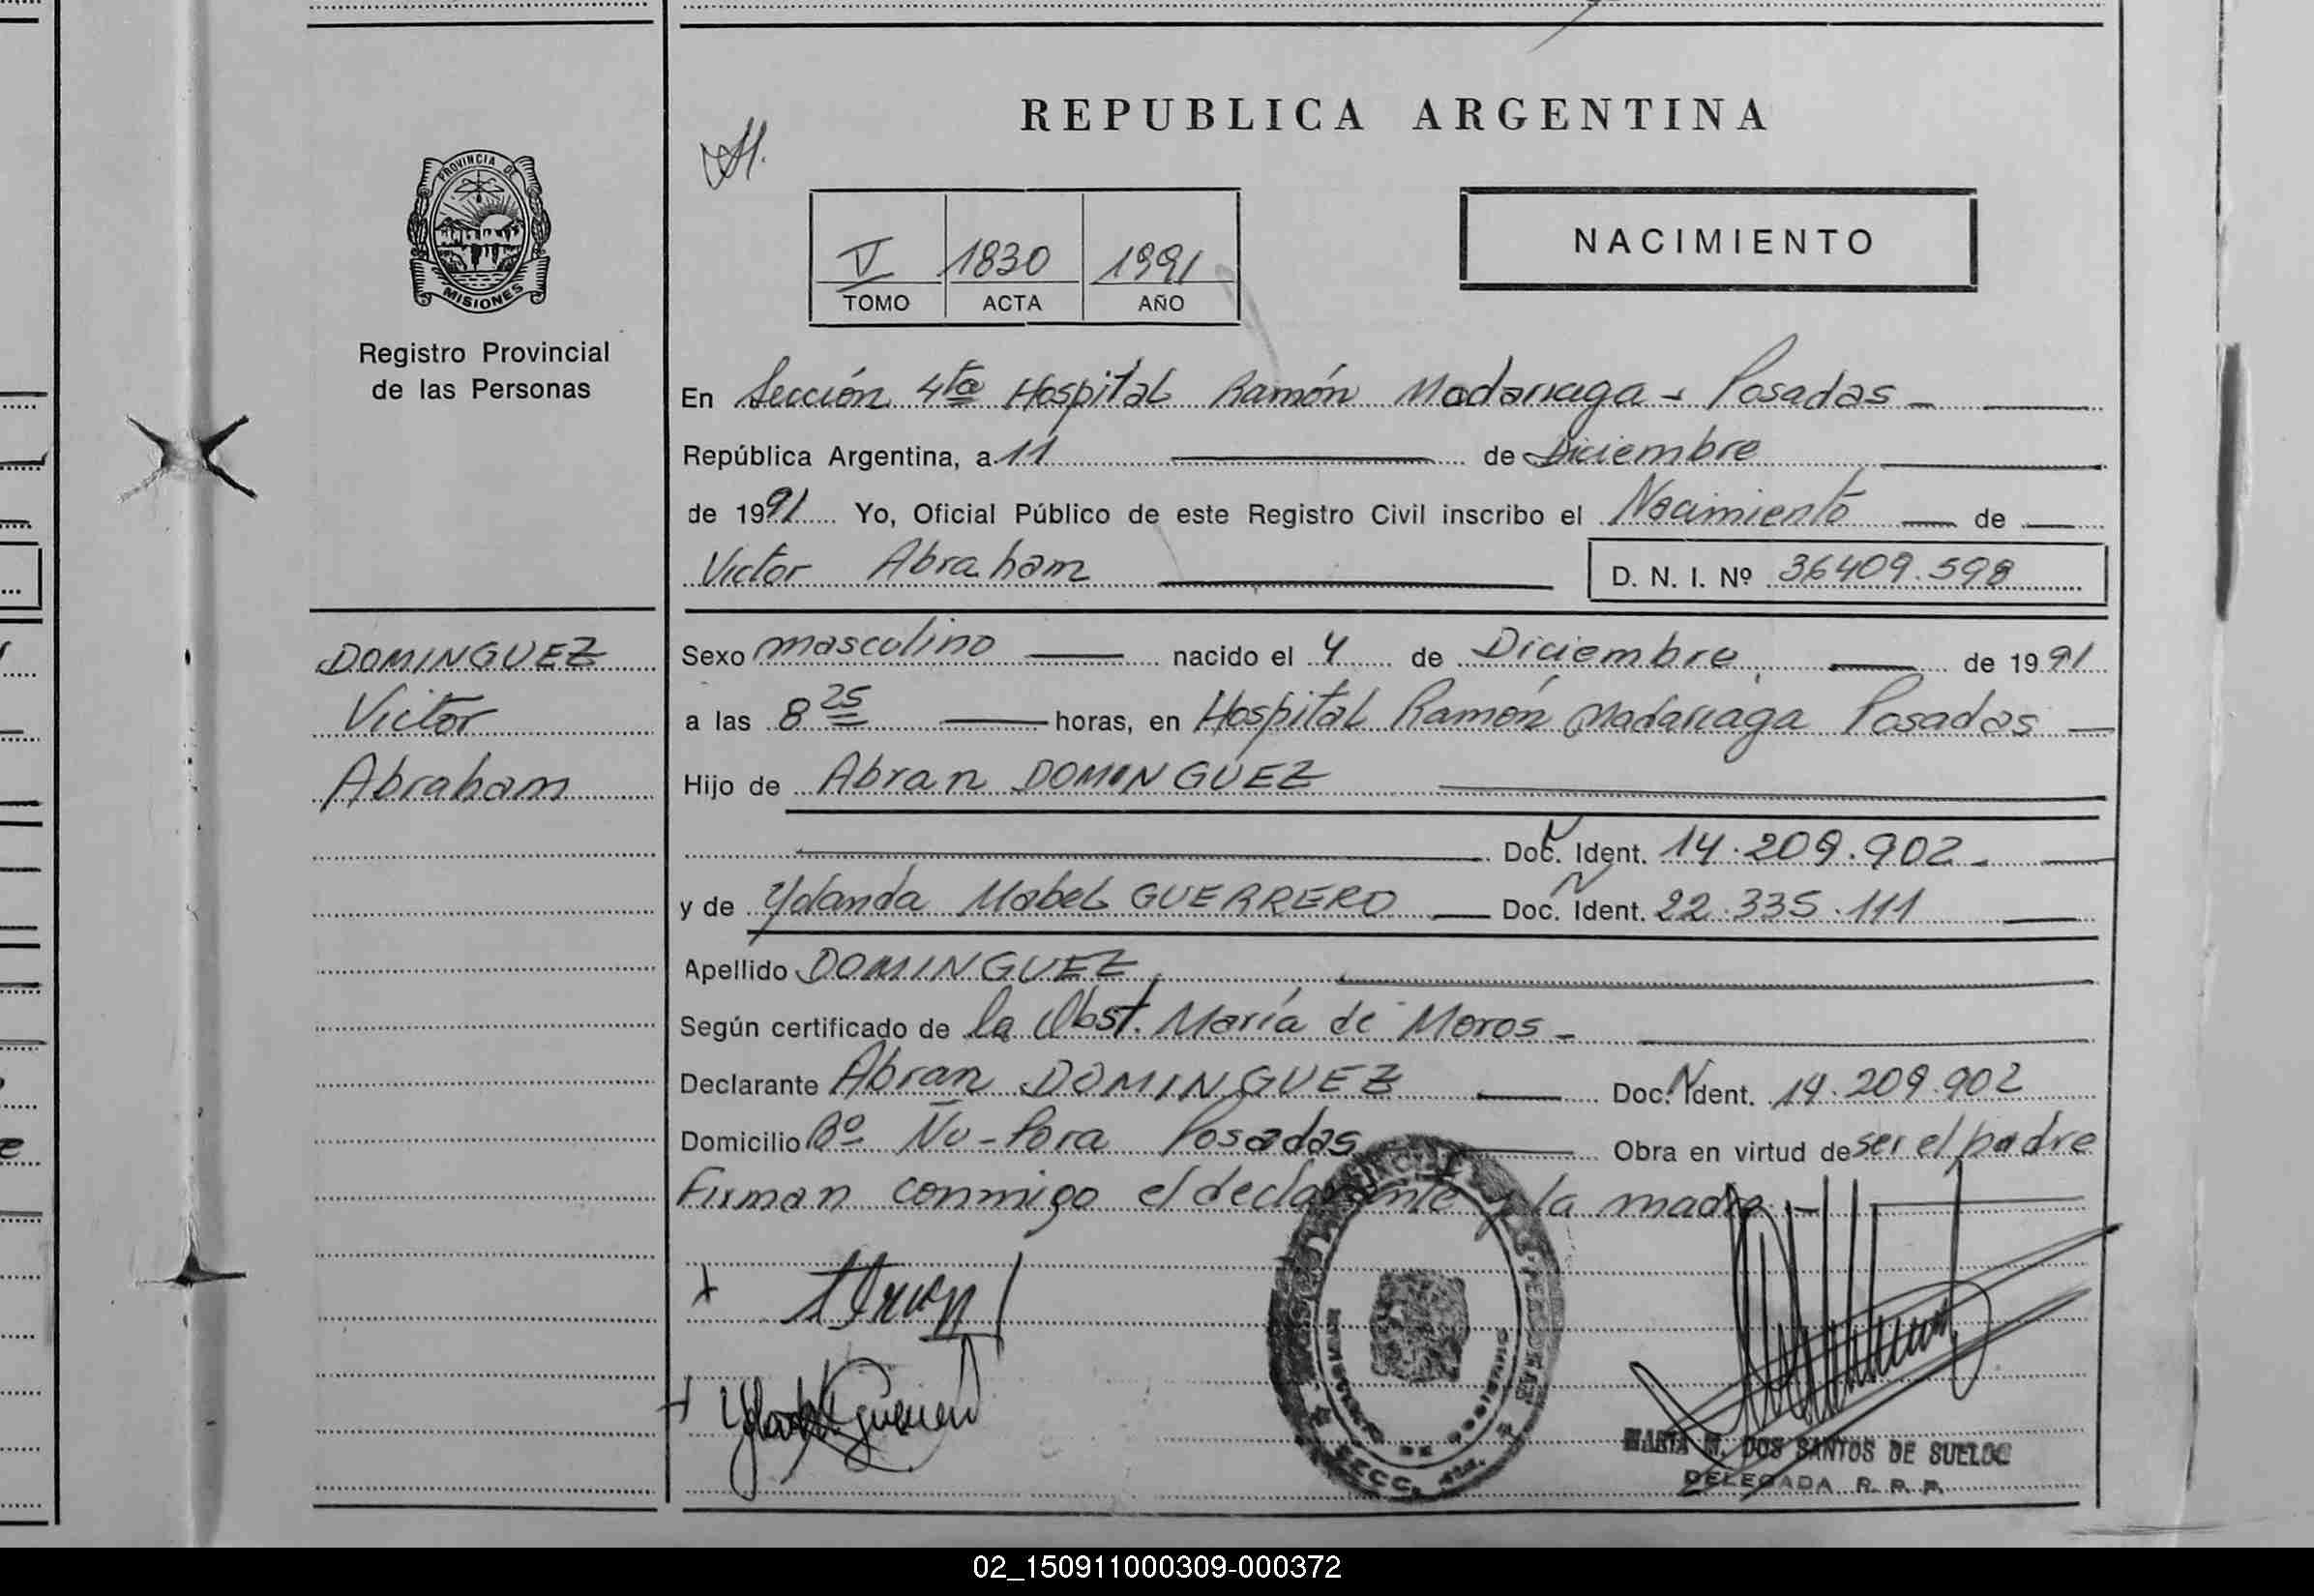 REPUBLICA ARGENTINA
PROVINCIA DE
MISIONES
Registro Provincial
de las Personas
V 1830 1991
TOMO ACTA AÑO
NACIMIENTO
En Sección 4ta Hospital Ramón Madariaga - Posadas -
República Argentina, a 11 de Diciembre
de 1991 Yo, Oficial Público de este Registro Civil inscribo el Nacimiento de
Victor Abraham D. N. I. Nº 36409.598
DOMINGUEZ
Victor
Abraham
Sexo masculino nacido el 4 de Diciembre, de 1991
a las 8 25 horas, en Hospital Ramón Madariaga Posadas
Hijo de Abran DOMINGUEZ
Doc. Ident. 14.209.902.
y de Yolanda Mabel GUERRERO Doc. Ident. 22.335.111
Apellido DOMINGUEZ
Según certificado de la Obst. María de Moros -
Declarante Abran DOMINGUEZ Doc. Ident. 14.209.902
Domicilio Bº Ñu-Pora Posadas Obra en virtud de ser el padre
Firman conmigo el declarante y la madre.-
SECC. 4ta.
MARIA M. DOS SANTOS DE SUELDO
DELEGADA R. P. P.
02_150911000309-000372